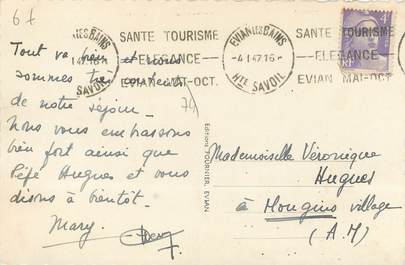 67
EVIAN LES BAINS
SAVOIE
SANTE TOURISME
ELEGANCE
EVIAN MAI-OCT.
EVIAN LES BAINS
- 4 I 47.16 -
HTE SAVOIE
SANTE TOURISME
ELEGANCE
EVIAN MAI-OCT
Tout va bien et nous
sommes très contents
de notre séjour.
Nous vous embrassons
bien fort ainsi que
Pépé Hugues et vous
disons à bientôt.
Mary.
74
Editions TOURNIER, EVIAN
Mademoiselle Véronique
Hugues
à Mougins village
(A.M)